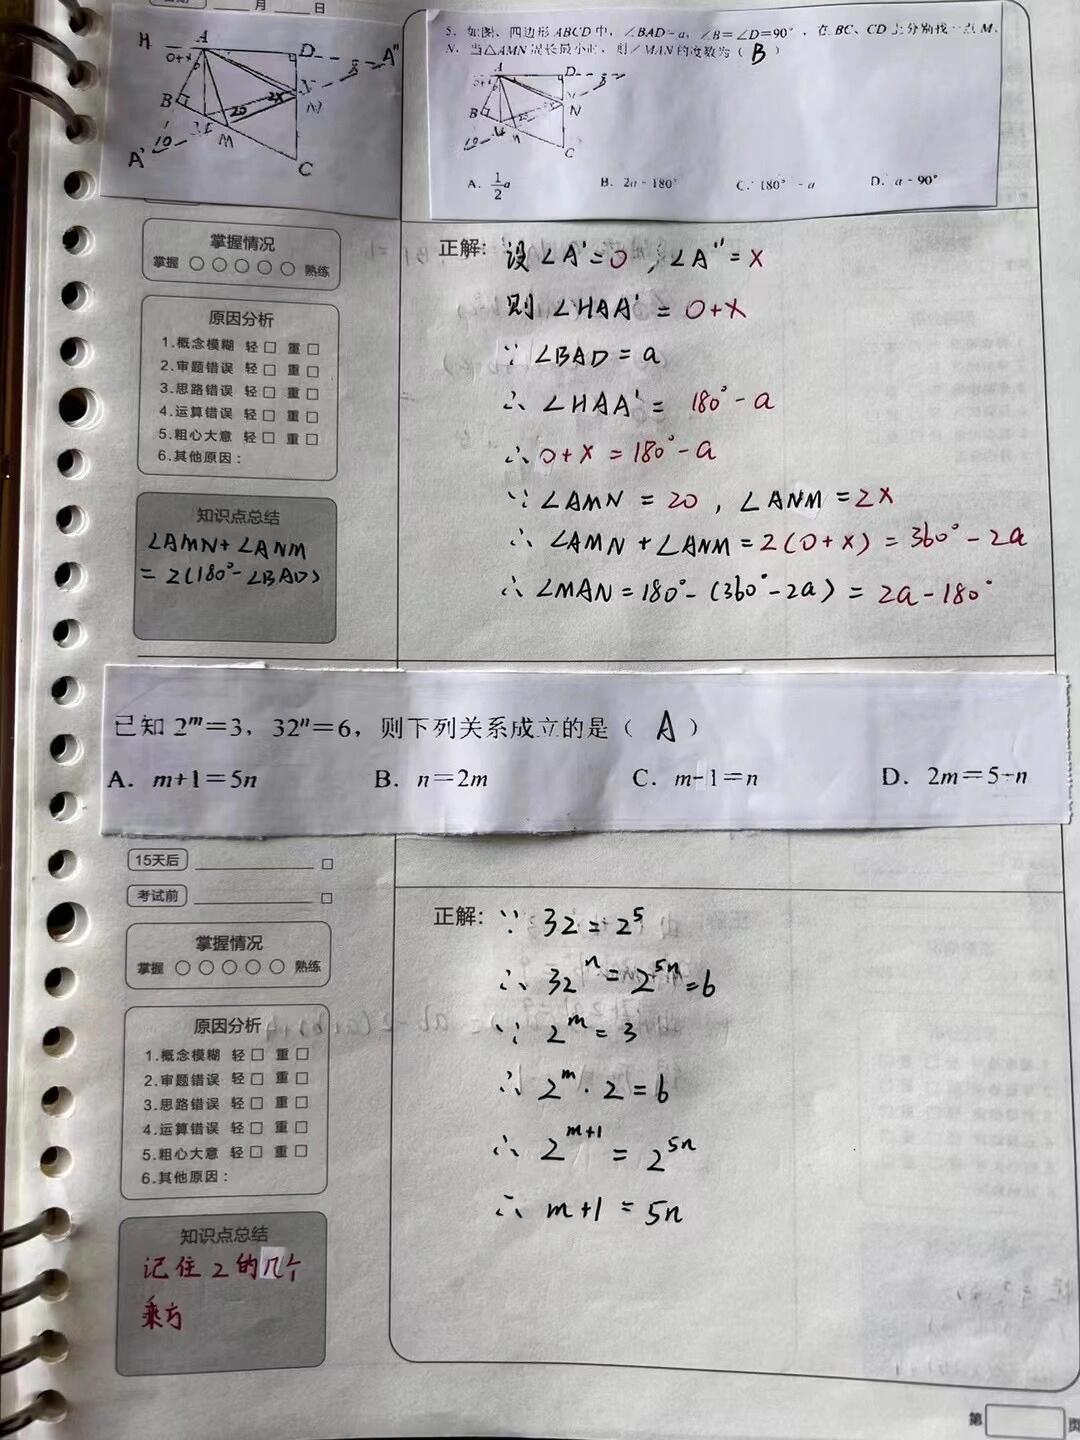 月 日
H A D A"
O+X
B N
2O 2X
A' M C
5. 如图，四边形ABCD中，∠BAD=a，∠B=∠D=90°，在BC、CD上分别找一点M、
N，当△AMN周长最小时，则∠MAN的度数为（ B ）
A D
B N
C
A. 1/2 a B. 2a-180° C. 180°-a D. a-90°
掌握情况
掌握 ○○○○○ 熟练
原因分析
1.概念模糊 轻□ 重□
2.审题错误 轻□ 重□
3.思路错误 轻□ 重□
4.运算错误 轻□ 重□
5.粗心大意 轻□ 重□
6.其他原因：
知识点总结
∠AMN+∠ANM
=2(180°-∠BAD)
正解: 设∠A'=O，∠A"=X
则∠HAA'=O+X
∵∠BAD=a
∴∠HAA'=180°-a
∴O+X=180°-a
∵∠AMN=2O，∠ANM=2X
∴∠AMN+∠ANM=2(O+X)=360°-2a
∴∠MAN=180°-(360°-2a)=2a-180°
已知2^m=3，32^n=6，则下列关系成立的是（ A ）
A. m+1=5n B. n=2m C. m-1=n D. 2m=5-n
15天后 □
考试前 □
掌握情况
掌握 ○○○○○ 熟练
原因分析
1.概念模糊 轻□ 重□
2.审题错误 轻□ 重□
3.思路错误 轻□ 重□
4.运算错误 轻□ 重□
5.粗心大意 轻□ 重□
6.其他原因：
知识点总结
记住2的几个
乘方
正解: ∵32=2^5
∴32^n=2^5n=6
∵2^m=3
∴2^m·2=6
∴2^m+1=2^5n
∴m+1=5n
第 页